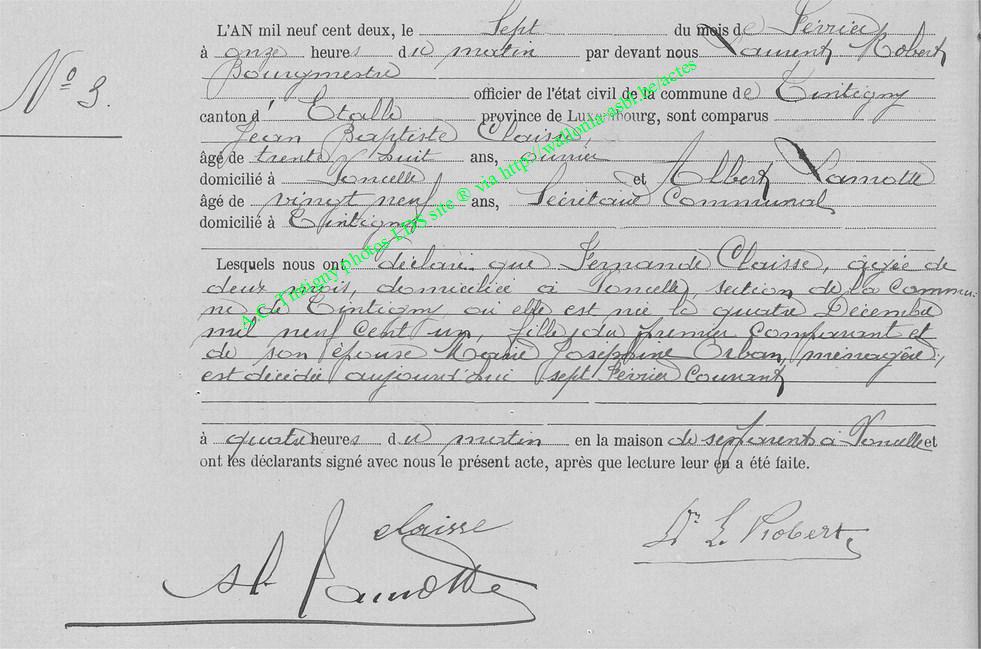 L'AN mil neuf cent deux, le Sept du mois de Février
à onze heures du matin par devant nous Laurent Robert
Bourgmestre
N° 3.
officier de l'état civil de la commune de Tintigny
canton d'Etalle province de Luxembourg, sont comparus
Jean Baptiste Claisse
âgé de trente huit ans, ouvrier
domicilié à Poncelle et Albert Lamotte
âgé de vingt neuf ans, Secrétaire Communal
domicilié à Tintigny
A.C. Tintigny photos LDS site ® via http://wallonia-asbl.be/actes
Lesquels nous ont déclaré que Fernande Claisse, agée de
deux mois, domiciliée à Poncelle, section de la Commu-
ne de Tintigny où elle est née le quatre Décembre
mil neuf cent un, fille du premier Comparant et
de son épouse Marie Joséphine Orban, ménagère,
est décédée aujourd'hui sept Février Courant
à quatre heures du matin en la maison de ses parents à Poncelle et
ont les déclarants signé avec nous le présent acte, après que lecture leur en a été faite.
Claisse
Dr L. Robert
Al. Lamotte